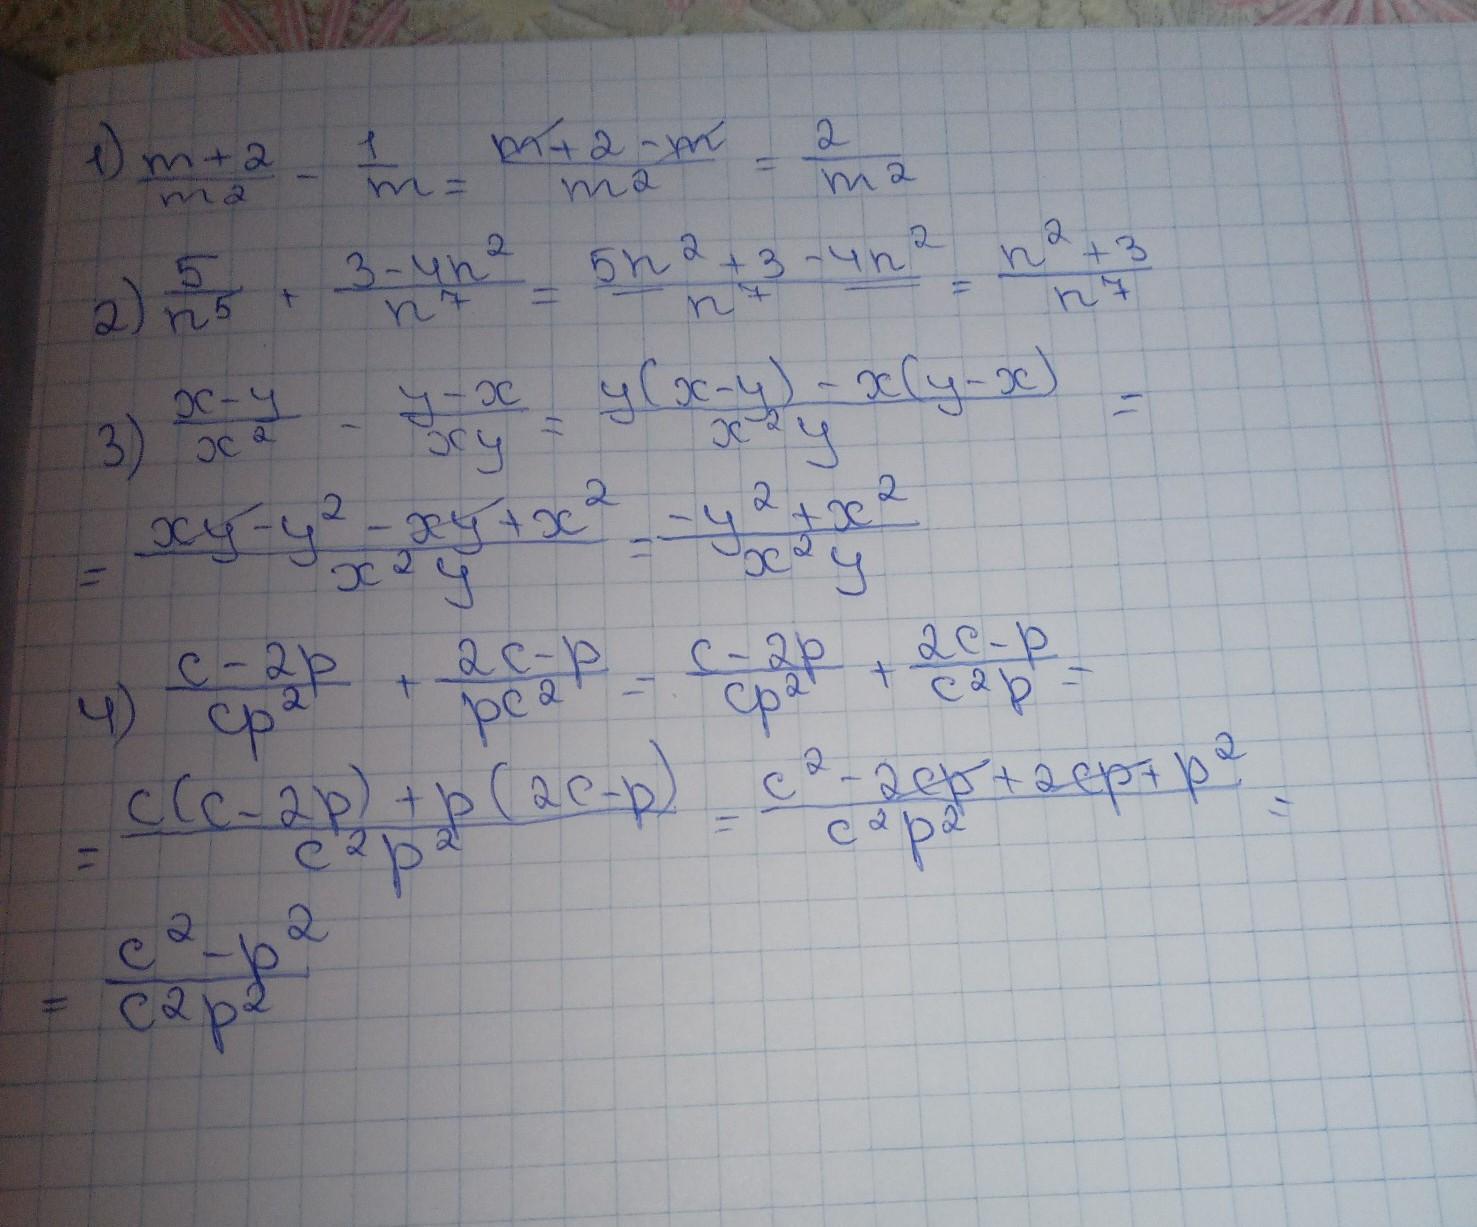 1) (m+2)/m² - 1/m = (m+2-m)/m² = 2/m²
2) 5/n⁵ + (3-4n²)/n⁷ = (5n²+3-4n²)/n⁷ = (n²+3)/n⁷
3) (x-y)/x² - (y-x)/xy = (y(x-y)-x(y-x))/x²y =
= (xy-y²-xy+x²)/x²y = (-y²+x²)/x²y
4) (c-2p)/cp² + (2c-p)/pc² = (c-2p)/cp² + (2c-p)/c²p =
= (c(c-2p)+p(2c-p))/c²p² = (c²-2cp+2cp+p²)/c²p² =
= (c²-p²)/c²p²